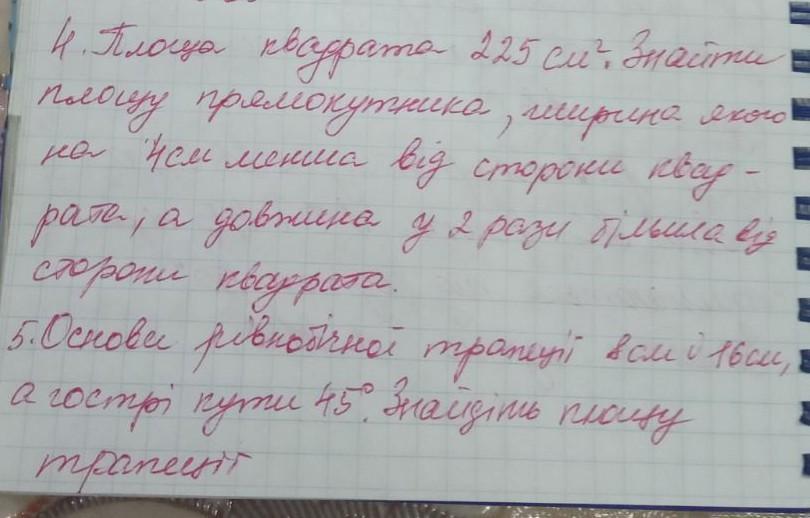 4. Площа квадрата 225 см². Знайти
площу прямокутника, ширина якого
на 4см менша від сторони квад-
рата, а довжина у 2 рази більша від
сторони квадрата.
5. Основи рівнобічної трапеції 8см і 16см,
а гострі кути 45°. Знайдіть площу
трапеції